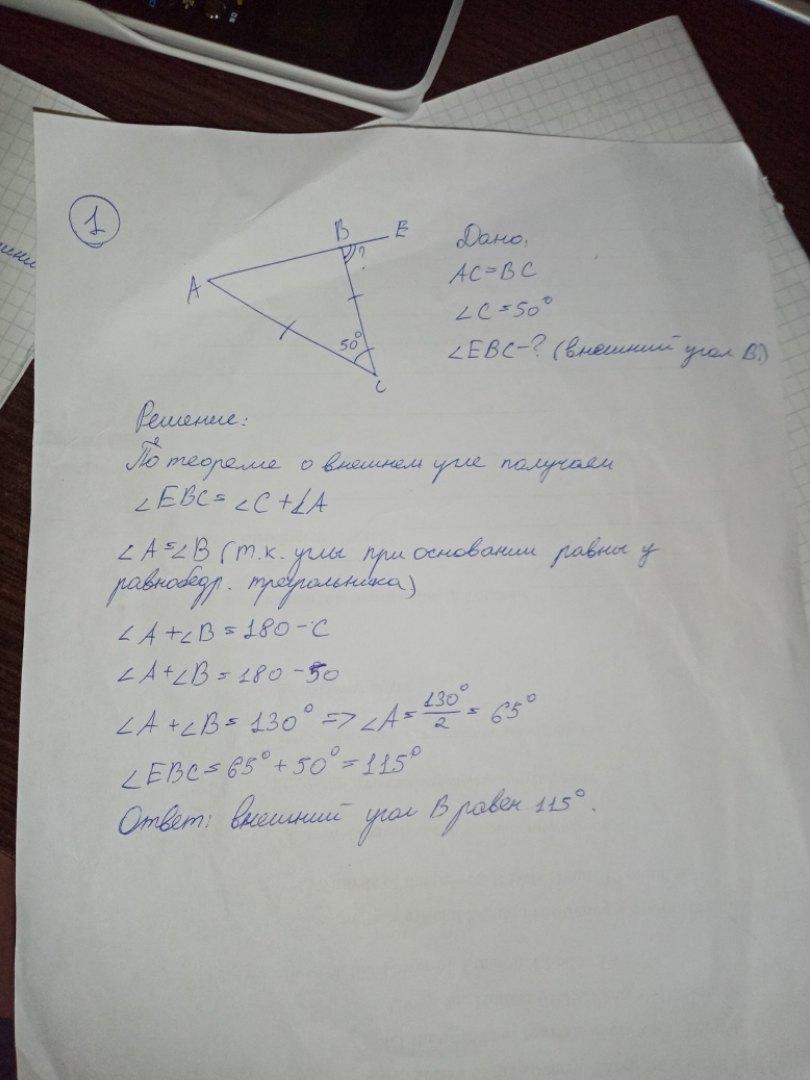 1
B E
?
A
50°
C
Дано:
AC=BC
∠C=50°
∠EBC-? (внешний угол B)
Решение:
По теореме о внешнем угле получаем
∠EBC=∠C+∠A
∠A=∠B (т.к. углы при основании равны у
равнобедр. треугольника)
∠A+∠B=180-C
∠A+∠B=180-50
∠A+∠B=130° => ∠A=130°/2=65°
∠EBC=65°+50°=115°
Ответ: внешний угол B равен 115°.